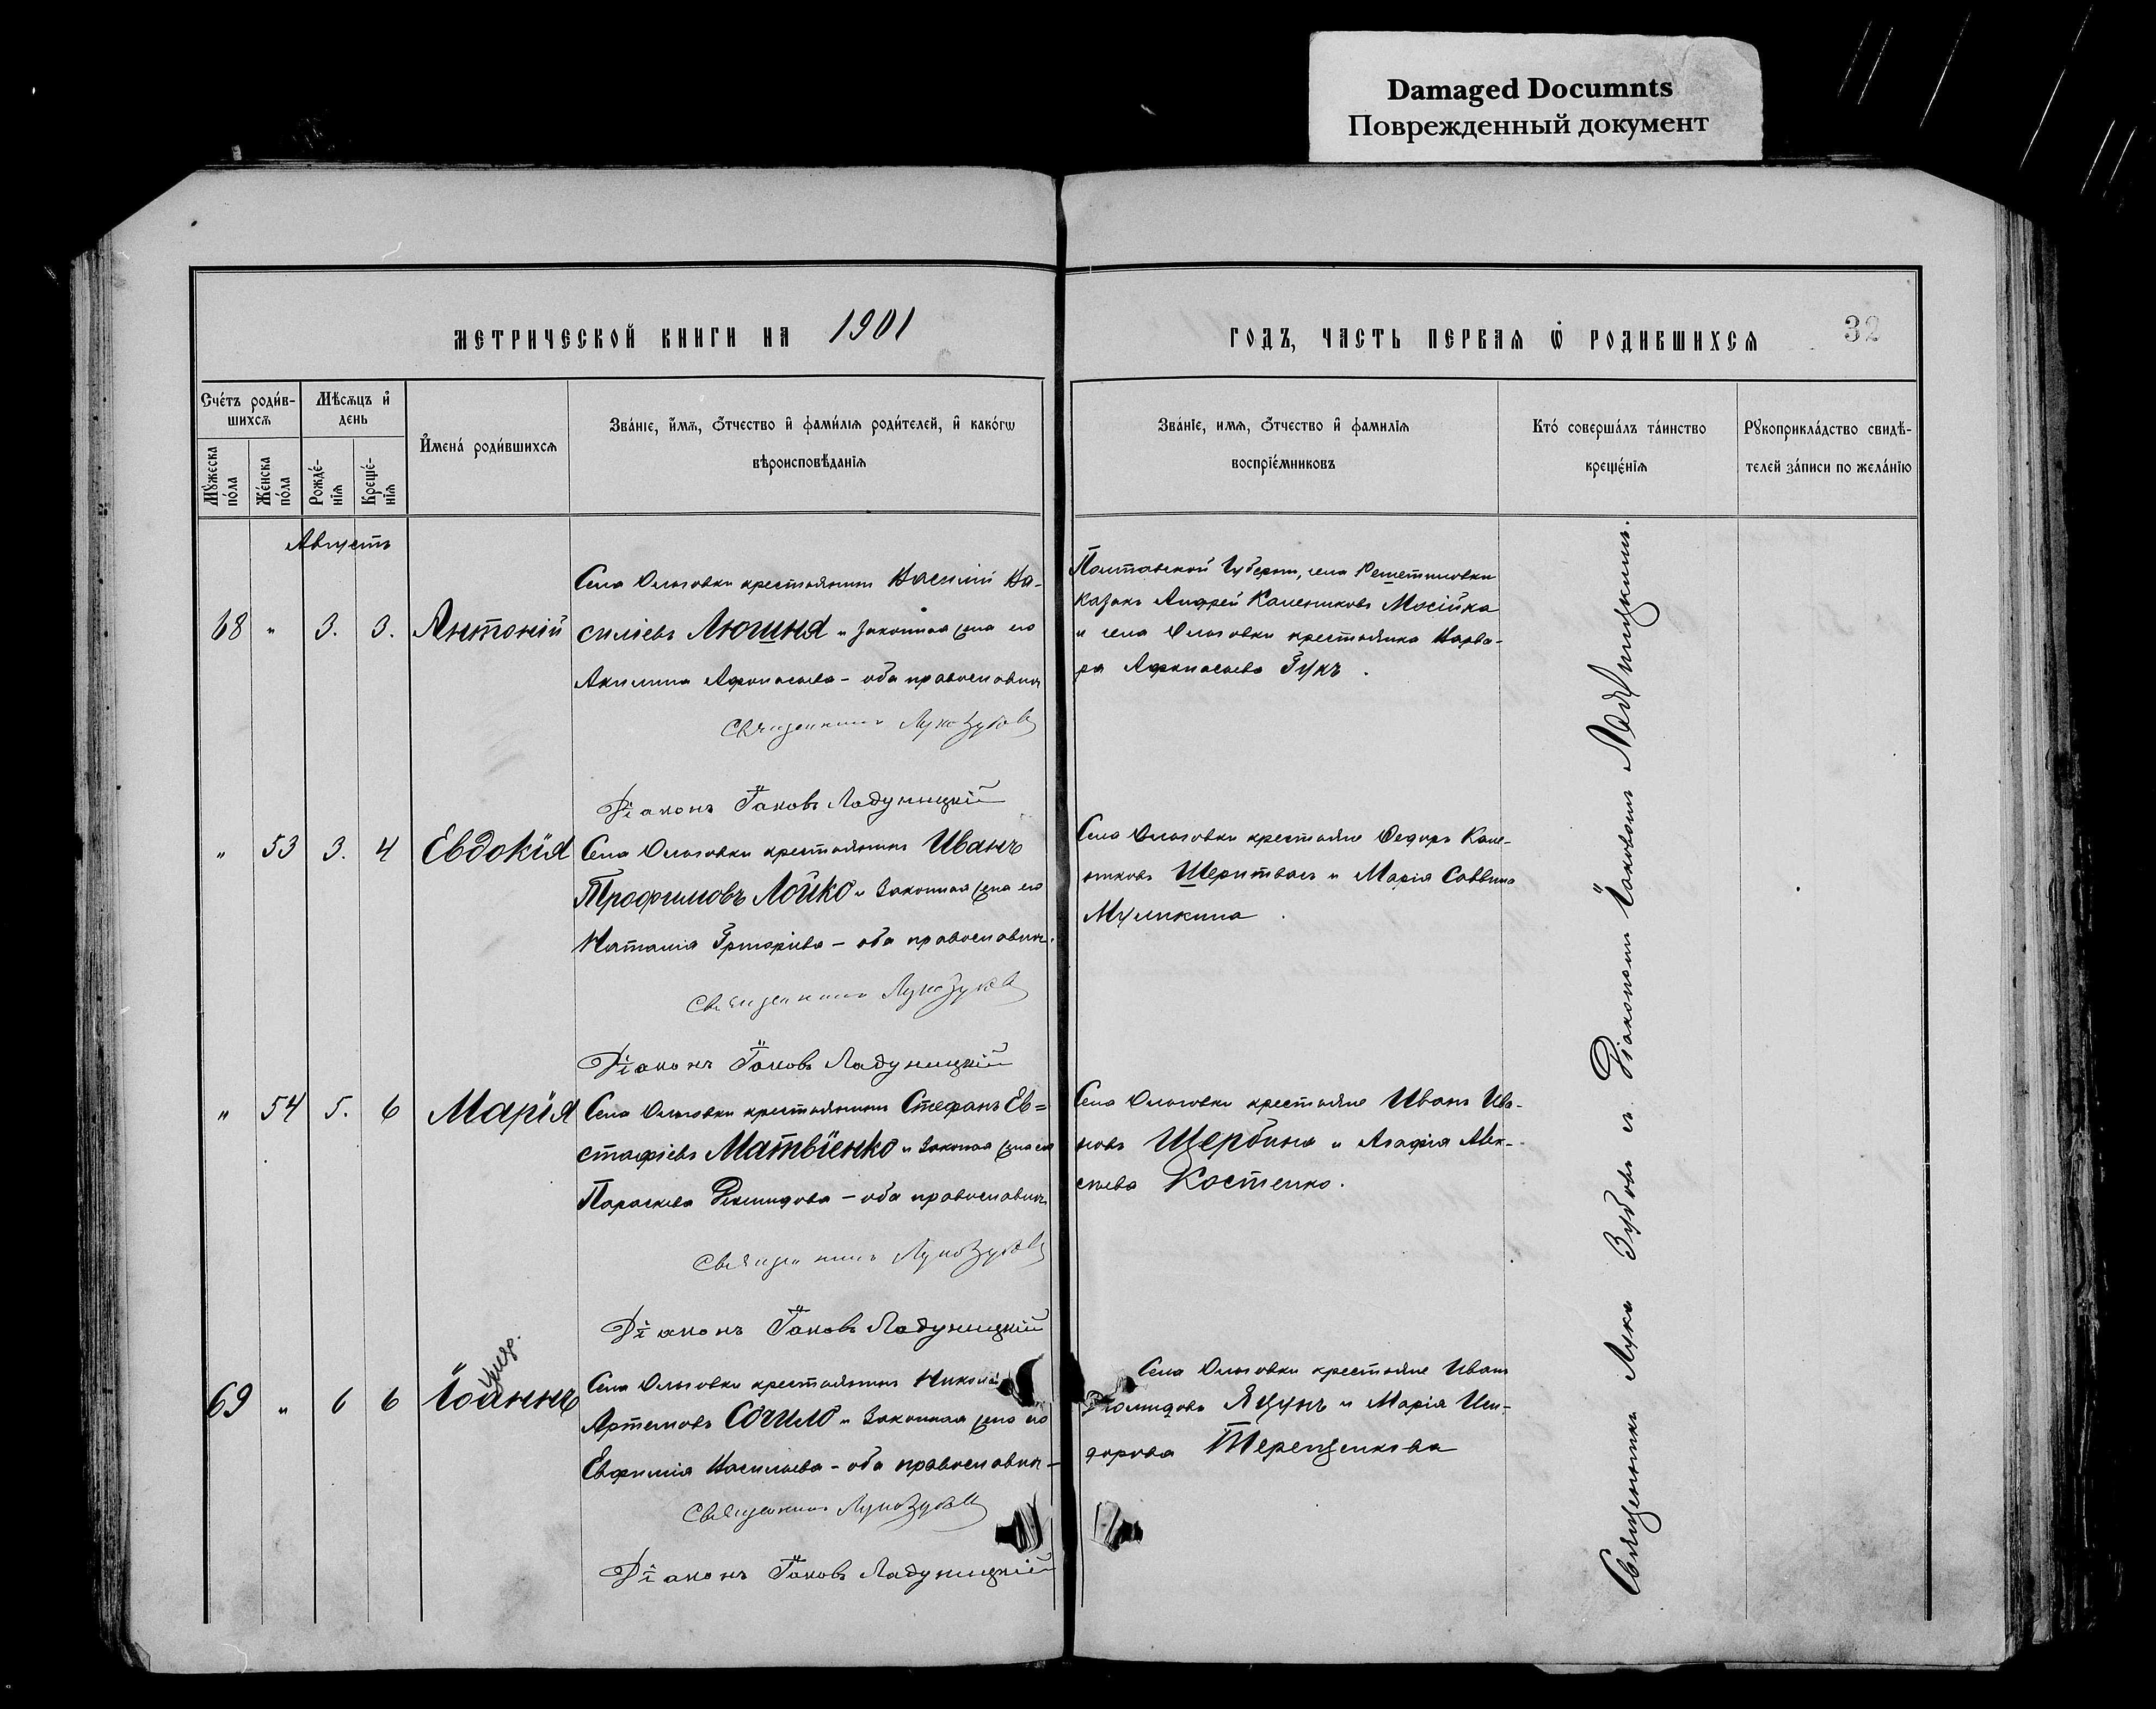 Damaged Documnts
Поврежденный документ
МЕТРИЧЕСКОЙ КНИГИ НА 1901
ГОДЪ, ЧАСТЬ ПЕРВАѦ Ѡ РОДИВШИХСѦ 32
Счетъ родив-
шихсѧ
Мѣсѧцъ и
день
Мужеска
пола
Женска
пола
Рожде-
нія
Креще-
нія
Имена родившихсѧ
Званіе, имѧ, ѻтчество и фамиліѧ родителей, и какогѡ
вѣроисповѣданіѧ
Званіе, имѧ, ѻтчество и фамиліѧ
воспріемниковъ
Кто совершалъ таинство
крещеніѧ
Рукоприкладство свидѣ-
телей записи по желанію
Августъ
68 " 3. 3. Антоній
Села Ольговки крестьянинъ Василій Ва-
силіевъ Люшня и законная жена его
Акилина Афанасьева - оба православны
Священникъ Лука Зубовъ
Діаконъ Іаковъ Ладуницкій
Полтавской Губерніи, села Решетиловки
казакъ Андрей Калениковъ Мосійка
и села Ольговки крестьянка Варва-
ра Афанасьева Зукъ.
" 53 3. 4 Евдокія
Села Ольговки крестьянинъ Иванъ
Трофимовъ Лойко и законная жена его
Наталія Григоріева - оба православны.
Священникъ Лука Зубовъ
Діаконъ Іаковъ Ладуницкій
Села Ольговки крестьяне Федоръ Кале-
никовъ и Марія Саввина
" 54 5. 6 Марія
Села Ольговки крестьянинъ Стефанъ Ев=
стафіевъ Матвіенко и законная жена его
Параскева Демидова - оба православны
Священникъ Лука Зубовъ
Діаконъ Іаковъ Ладуницкій
Села Ольговки крестьяне Иванъ Ива-
новъ Щербина и Агафія Алек-
сѣева Костенко.
69 " 6 6 Іоаннъ
Села Ольговки крестьянинъ Николай
Артемовъ Сочило и законная жена его
Евфимія Васильева - оба православны -
Священникъ Лука Зубовъ
Діаконъ Іаковъ Ладуницкій
Села Ольговки крестьяне Иванъ
Діомидовъ Яцунъ и Марія Иси-
дорова Терещенкова
Священникъ Лука Зубовъ съ Діакономъ Іаковомъ Ладуницкимъ.